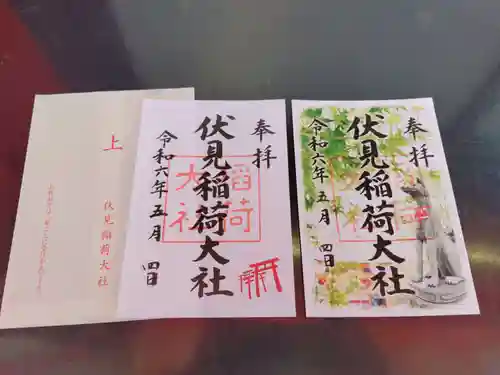 奉拝
伏見稲荷大社
令和六年五月四日
稲荷
大社
奉拝
伏見稲荷大社
令和六年五月四日
上
伏見稲荷大社